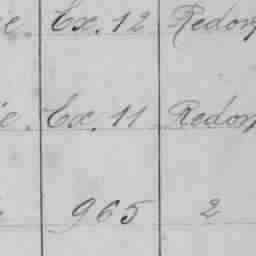 e. Ex. 12 Redon
e. Ex. 11 Redon
965 2